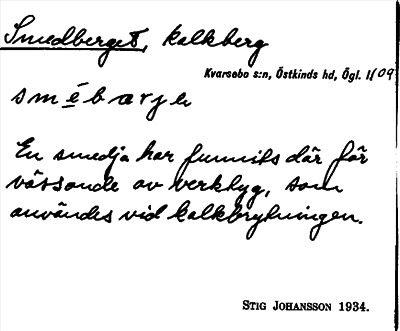 Smedberget, kalkberg
Kvarsebo s:n, Östkinds hd, Ögl. 1/09
smébarje
En smedja har funnits där för
vässande av verktyg, som
användes vid kalkbrytningen.
STIG JOHANSSON 1934.